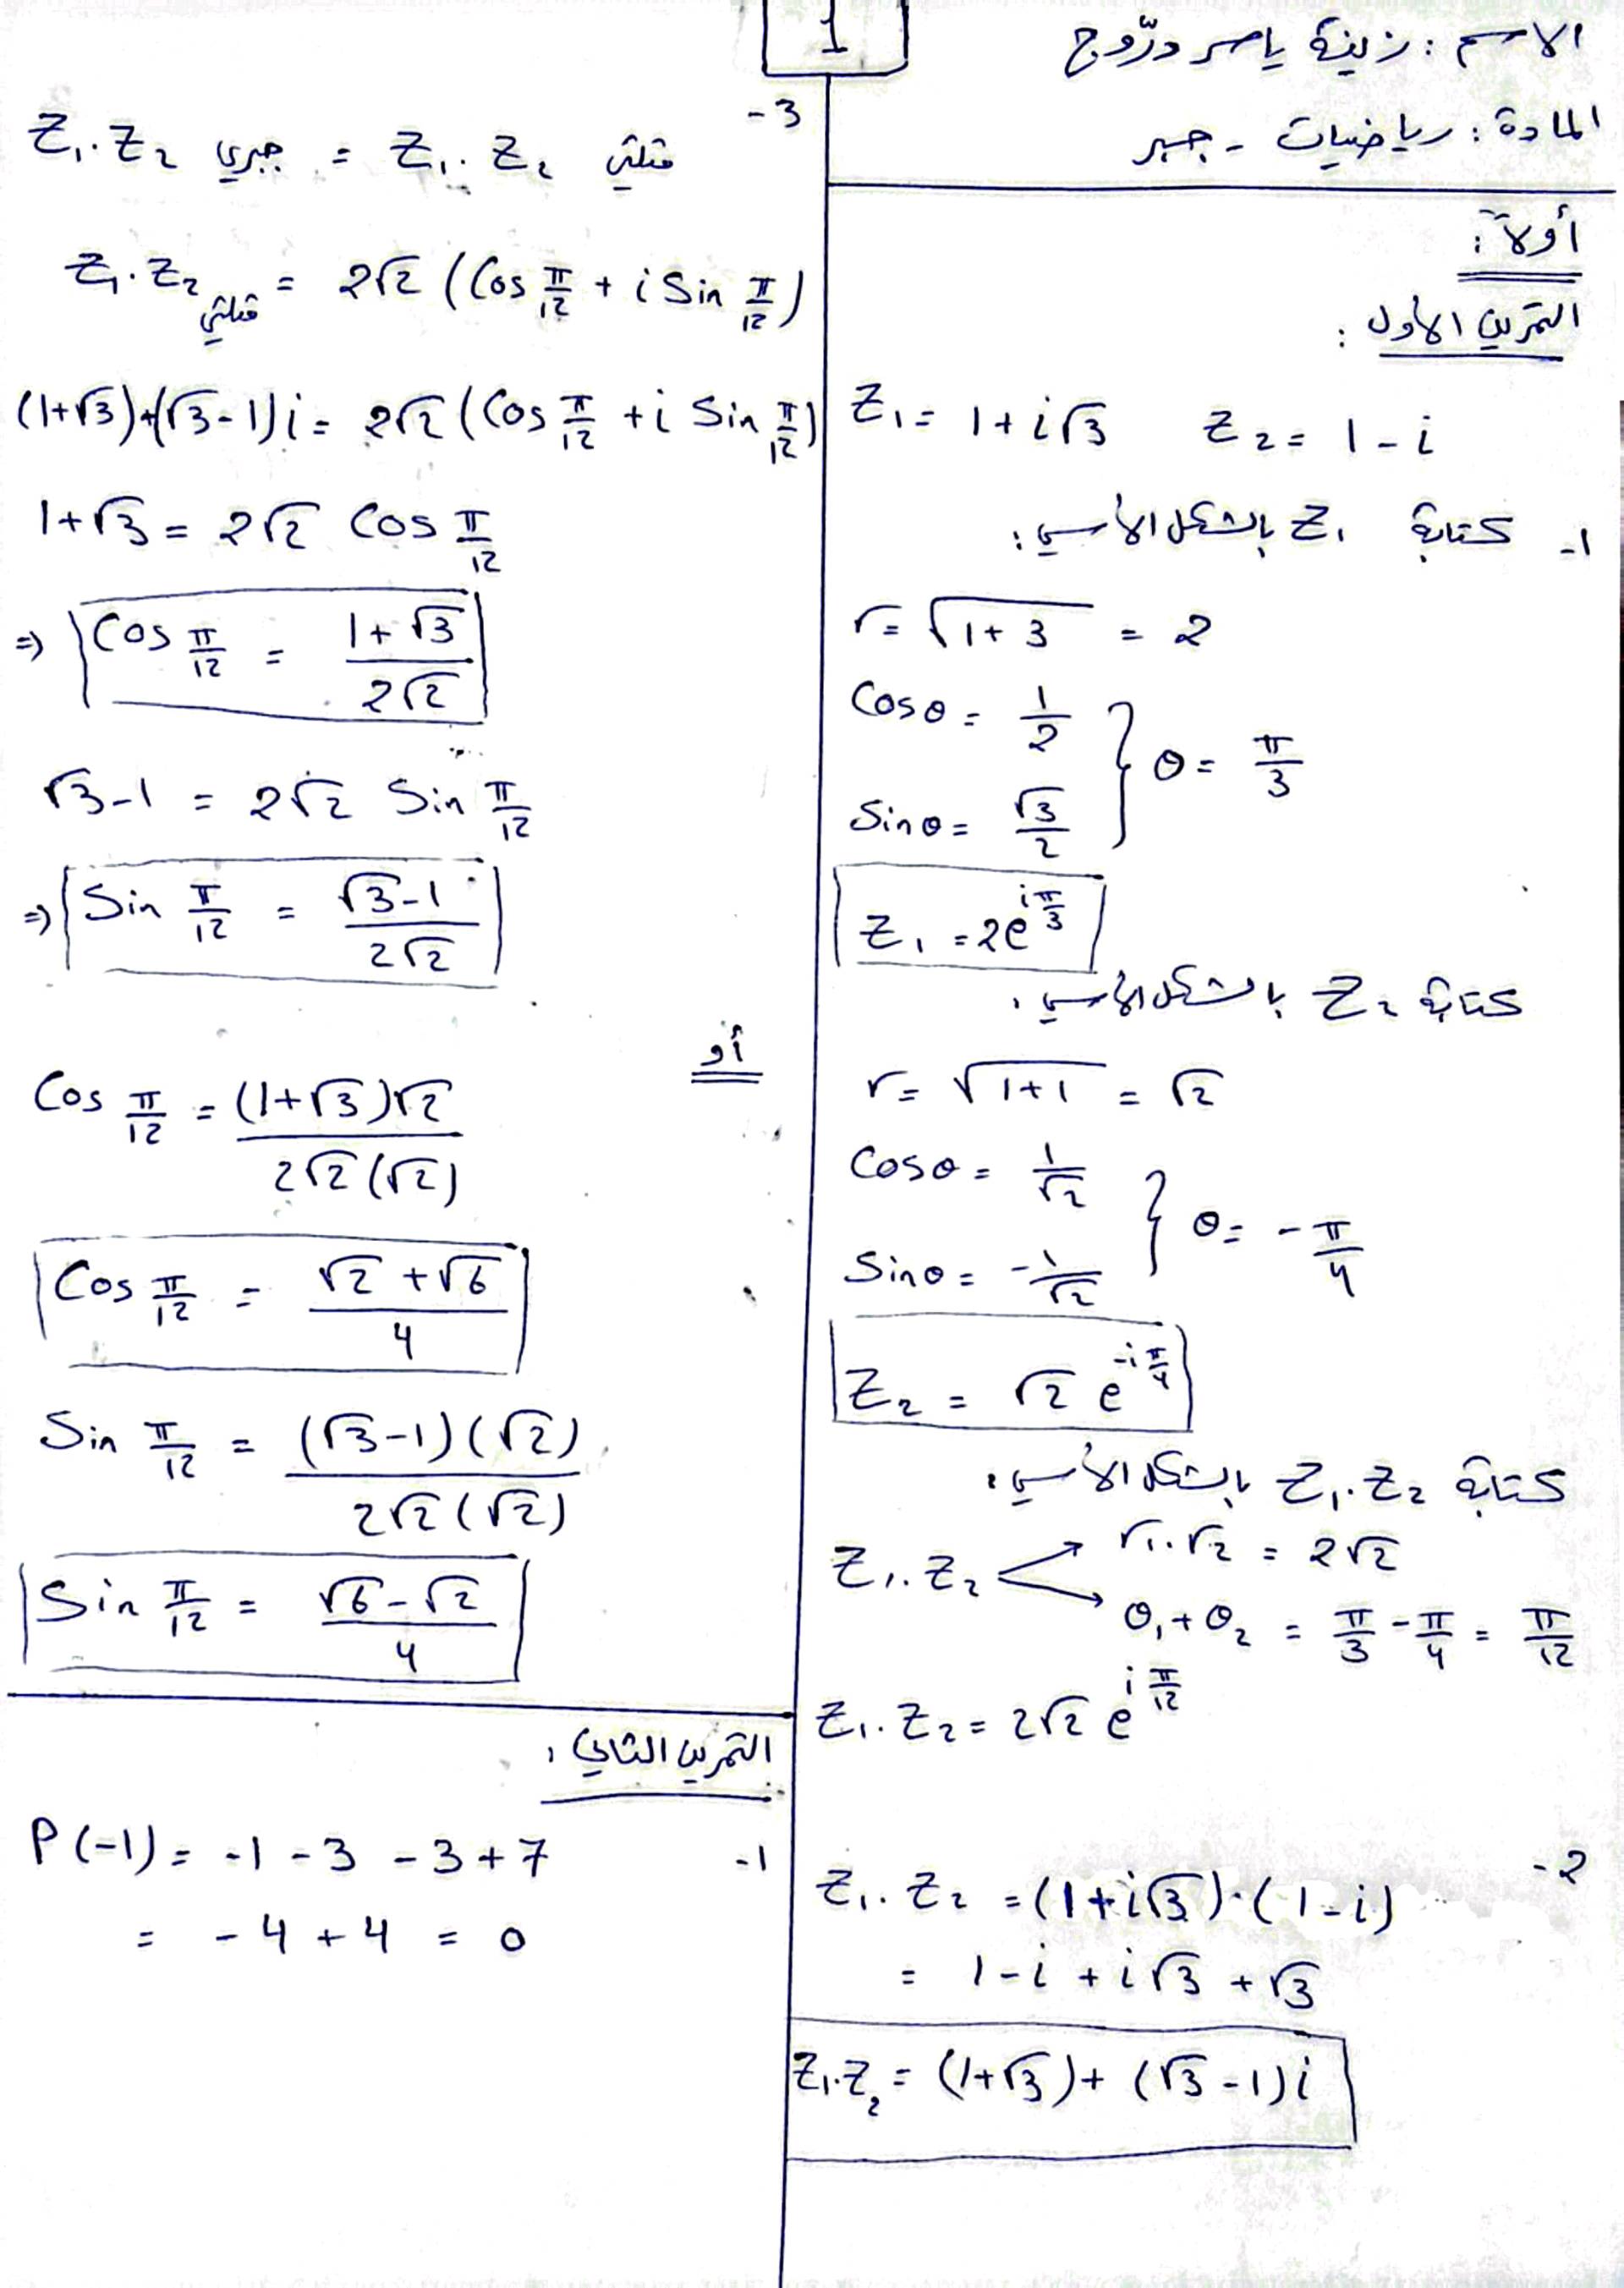 1
الاسم : زينة ياسر درّوج
المادة : رياضيات - جبر
أولاً :
التمرين الأول :
Z₁ = 1 + i√3 Z₂ = 1 - i
1- كتابة Z₁ بالشكل الأسي :
r = √(1+3) = 2
Cosθ = 1/2
Sinθ = √3/2
} θ = π/3
Z₁ = 2e^(iπ/3)
كتابة Z₂ بالشكل الأسي :
r = √(1+1) = √2
Cosθ = 1/√2
Sinθ = -1/√2
} θ = -π/4
Z₂ = √2 e^(-iπ/4)
كتابة Z₁.Z₂ بالشكل الأسي :
Z₁.Z₂
r₁.r₂ = 2√2
θ₁+θ₂ = π/3 - π/4 = π/12
Z₁.Z₂ = 2√2 e^(iπ/12)
-2
Z₁.Z₂ = (1+i√3).(1-i)
= 1 - i + i√3 + √3
Z₁.Z₂ = (1+√3) + (√3-1)i
-3
Z₁.Z₂ جبري = Z₁.Z₂ مثلثي
Z₁.Z₂ مثلثي = 2√2 (Cos π/12 + i Sin π/12)
(1+√3)+(√3-1)i = 2√2 (Cos π/12 + i Sin π/12)
1+√3 = 2√2 Cos π/12
⇒ Cos π/12 = (1+√3)/(2√2)
√3-1 = 2√2 Sin π/12
⇒ Sin π/12 = (√3-1)/(2√2)
أو
Cos π/12 = (1+√3)√2/(2√2(√2))
Cos π/12 = (√2+√6)/4
Sin π/12 = (√3-1)(√2)/(2√2(√2))
Sin π/12 = (√6-√2)/4
التمرين الثاني :
-1
P(-1) = -1 - 3 - 3 + 7
= -4 + 4 = 0